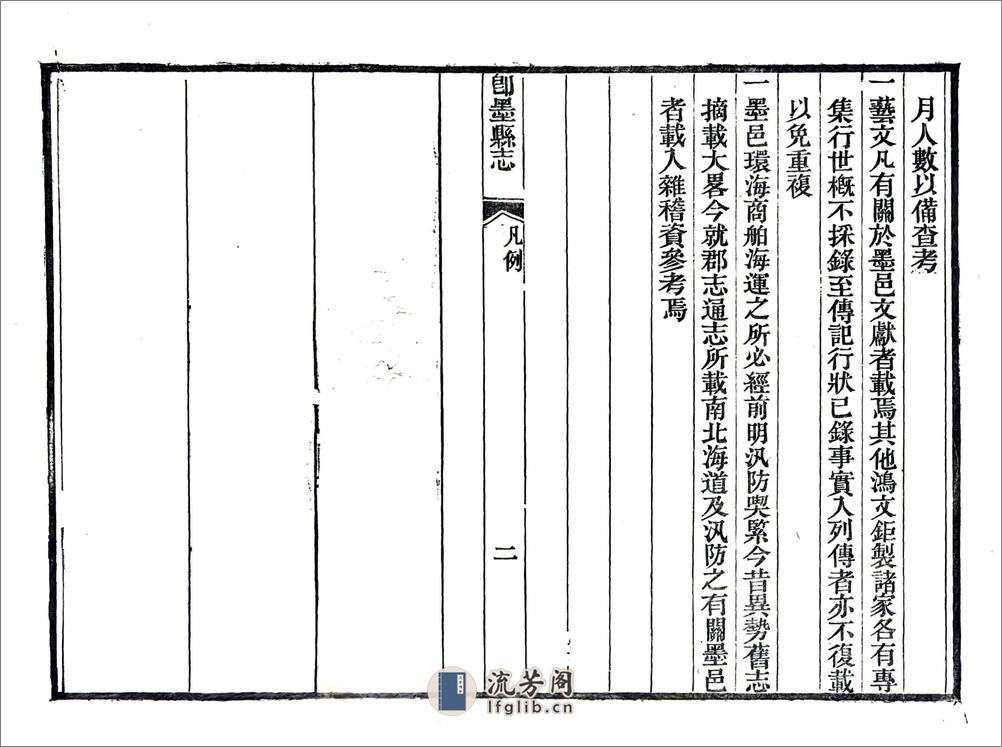 月人數以備查考
一藝文凡有關於墨邑文獻者載焉其他鴻文鉅製諸家各有專
集行世槪不採錄至傳記行狀已錄事實入列傳者亦不復載
以免重複
一墨邑環海商舶海運之所必經前明汛防喫緊今昔異勢舊志
摘載大畧今就郡志通志所載南北海道及汛防之有關墨邑
者載入雜稽資參考焉
卽墨縣志
凡例
二
流芳阁
lfglib.cn